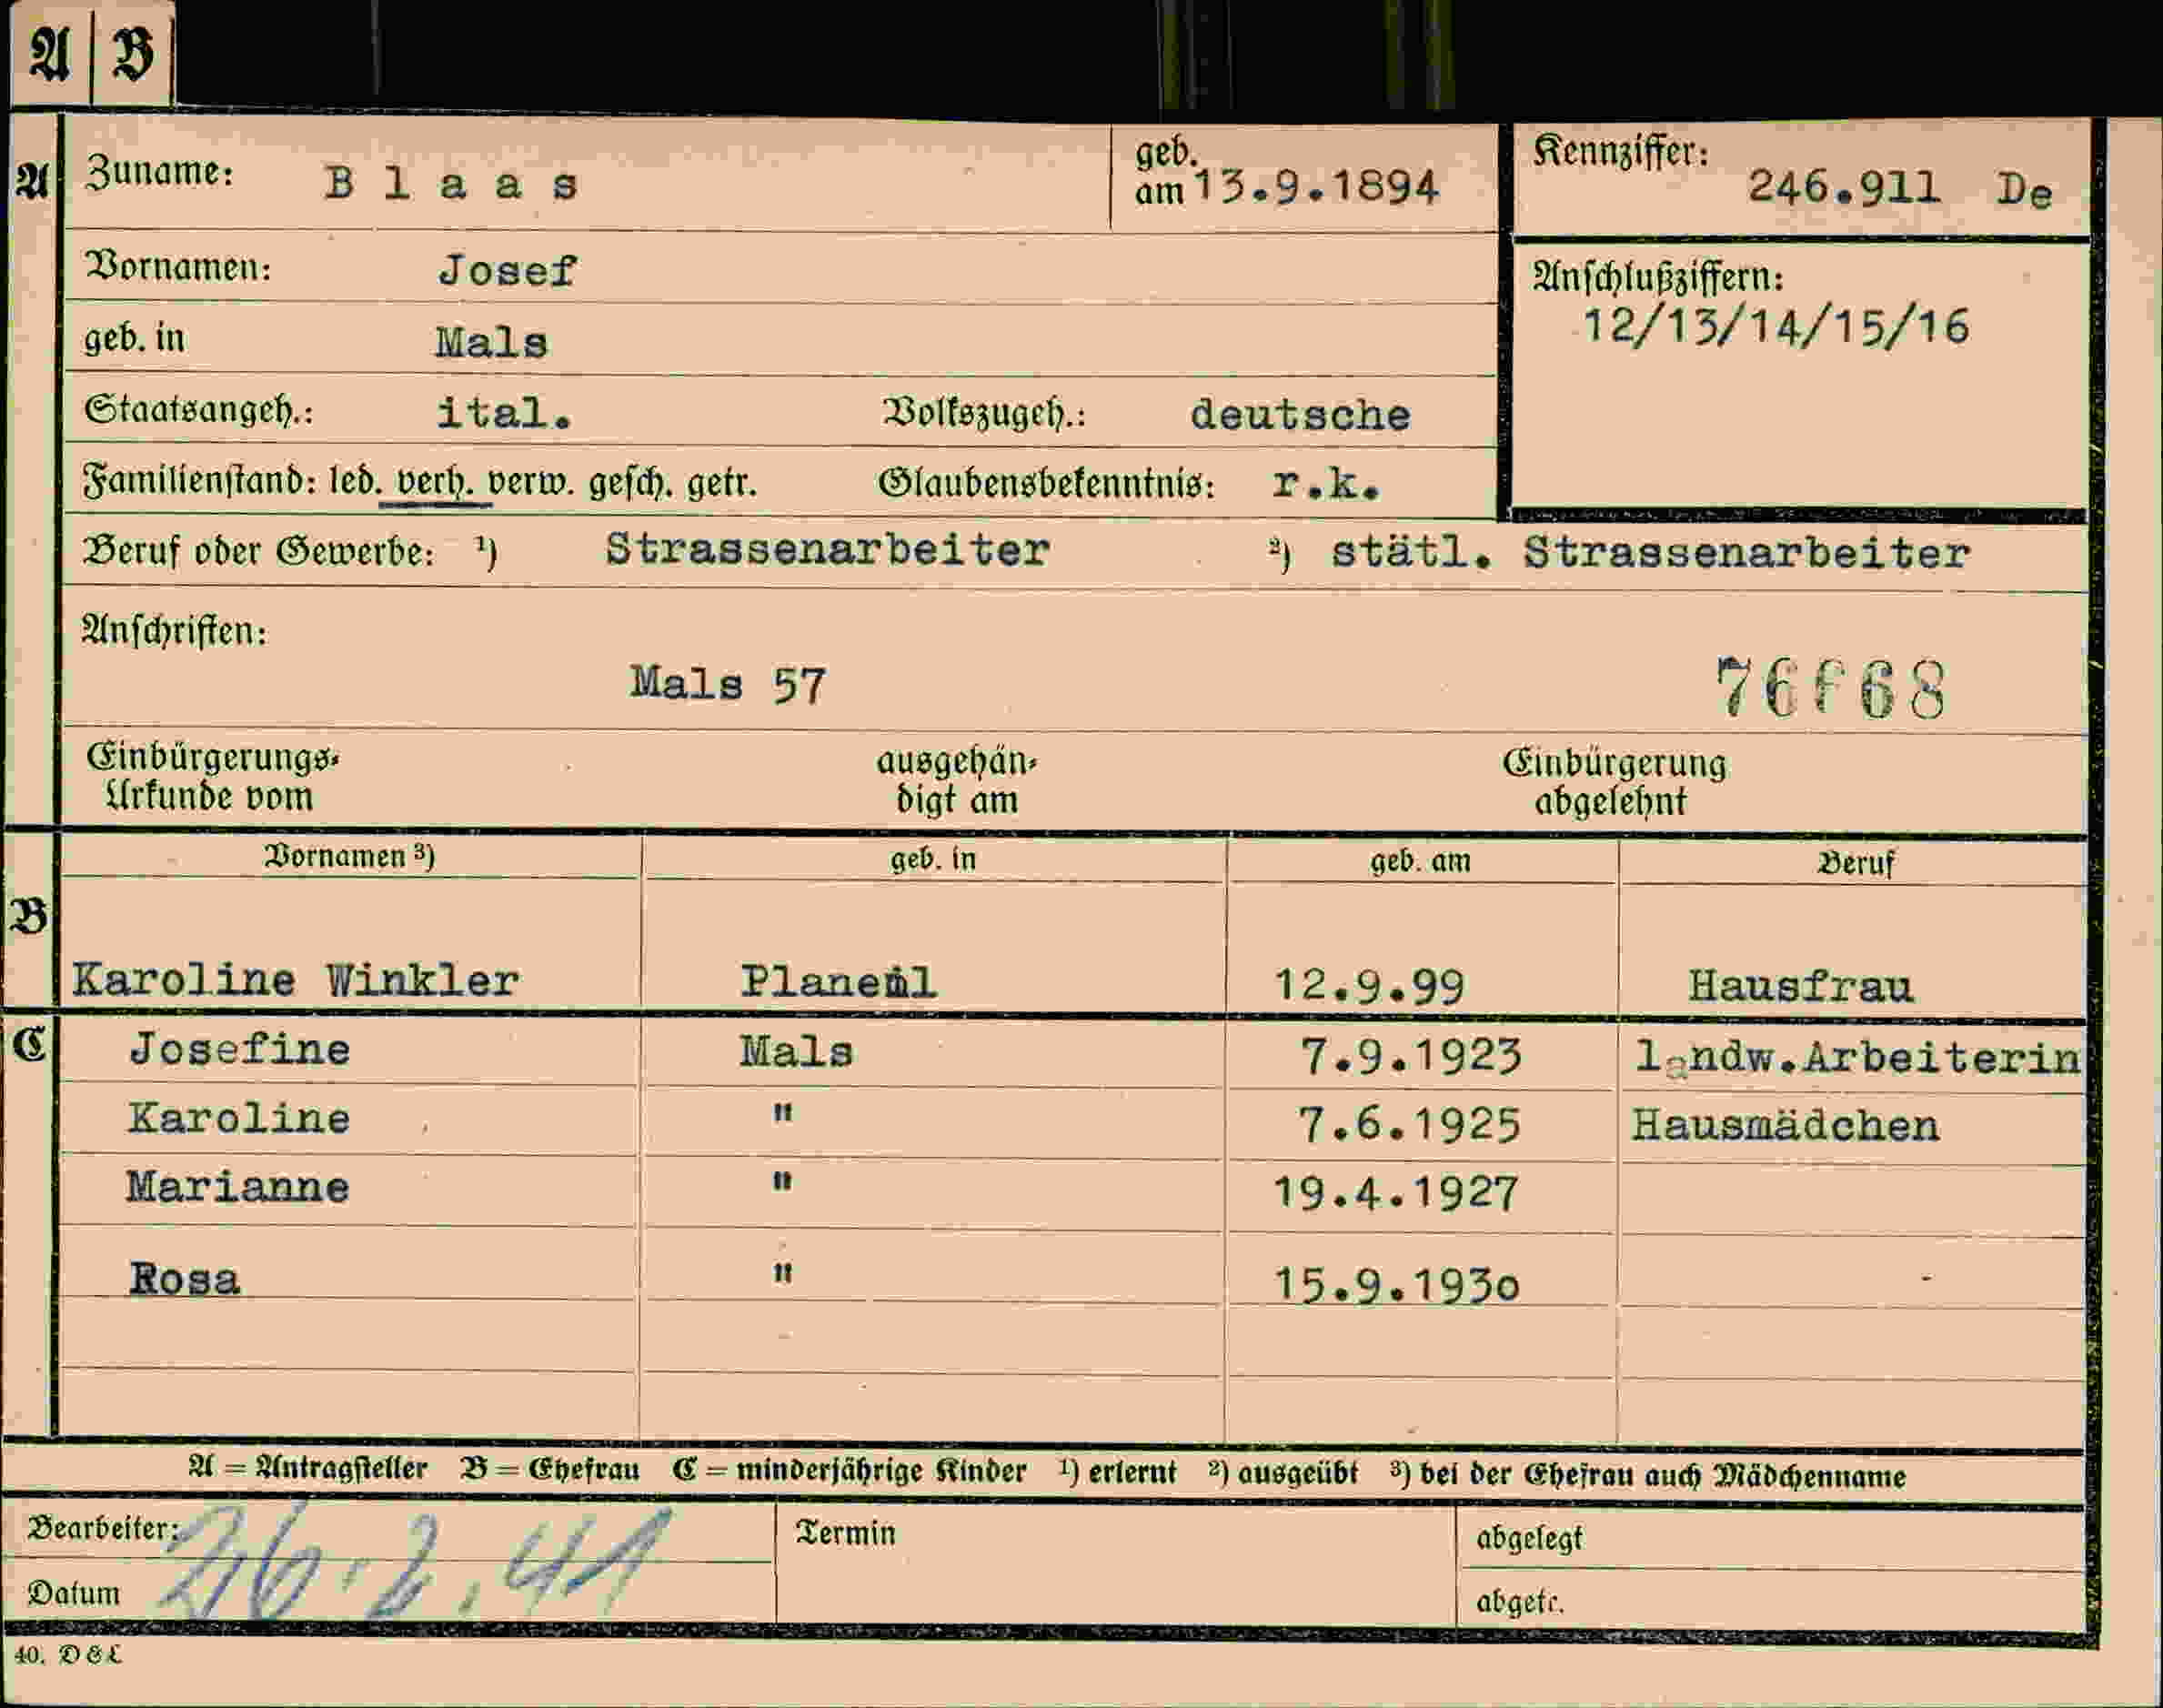 A B
A Zuname: Blaas geb. am 13.9.1894 Kennziffer: 246.911 De
Vornamen: Josef Anschlußziffern:
12/13/14/15/16
geb. in Mals
Staatsangeh.: ital. Volkszugeh.: deutsche
Familienstand: led. verh. verw. gesch. getr. Glaubensbekenntnis: r.k.
Beruf oder Gewerbe: ¹) Strassenarbeiter ²) stätl. Strassenarbeiter
Anschriften:
Mals 57
Einbürgerungs- ausgehän- Einbürgerung
Urkunde vom digt am abgelehnt
Vornamen ³) geb. in geb. am Beruf
B
Karoline Winkler 12.9.99 Hausfrau
C Josefine Mals 7.9.1923 landw.Arbeiterin
Karoline " 7.6.1925 Hausmädchen
Marianne " 19.4.1927
Rosa " 15.9.1930
A = Antragsteller B = Ehefrau C = minderjährige Kinder ¹) erlernt ²) ausgeübt ³) bei der Ehefrau auch Mädchenname
Bearbeiter: Termin abgelegt
26.2.41
Datum abgetr.
40. D & L